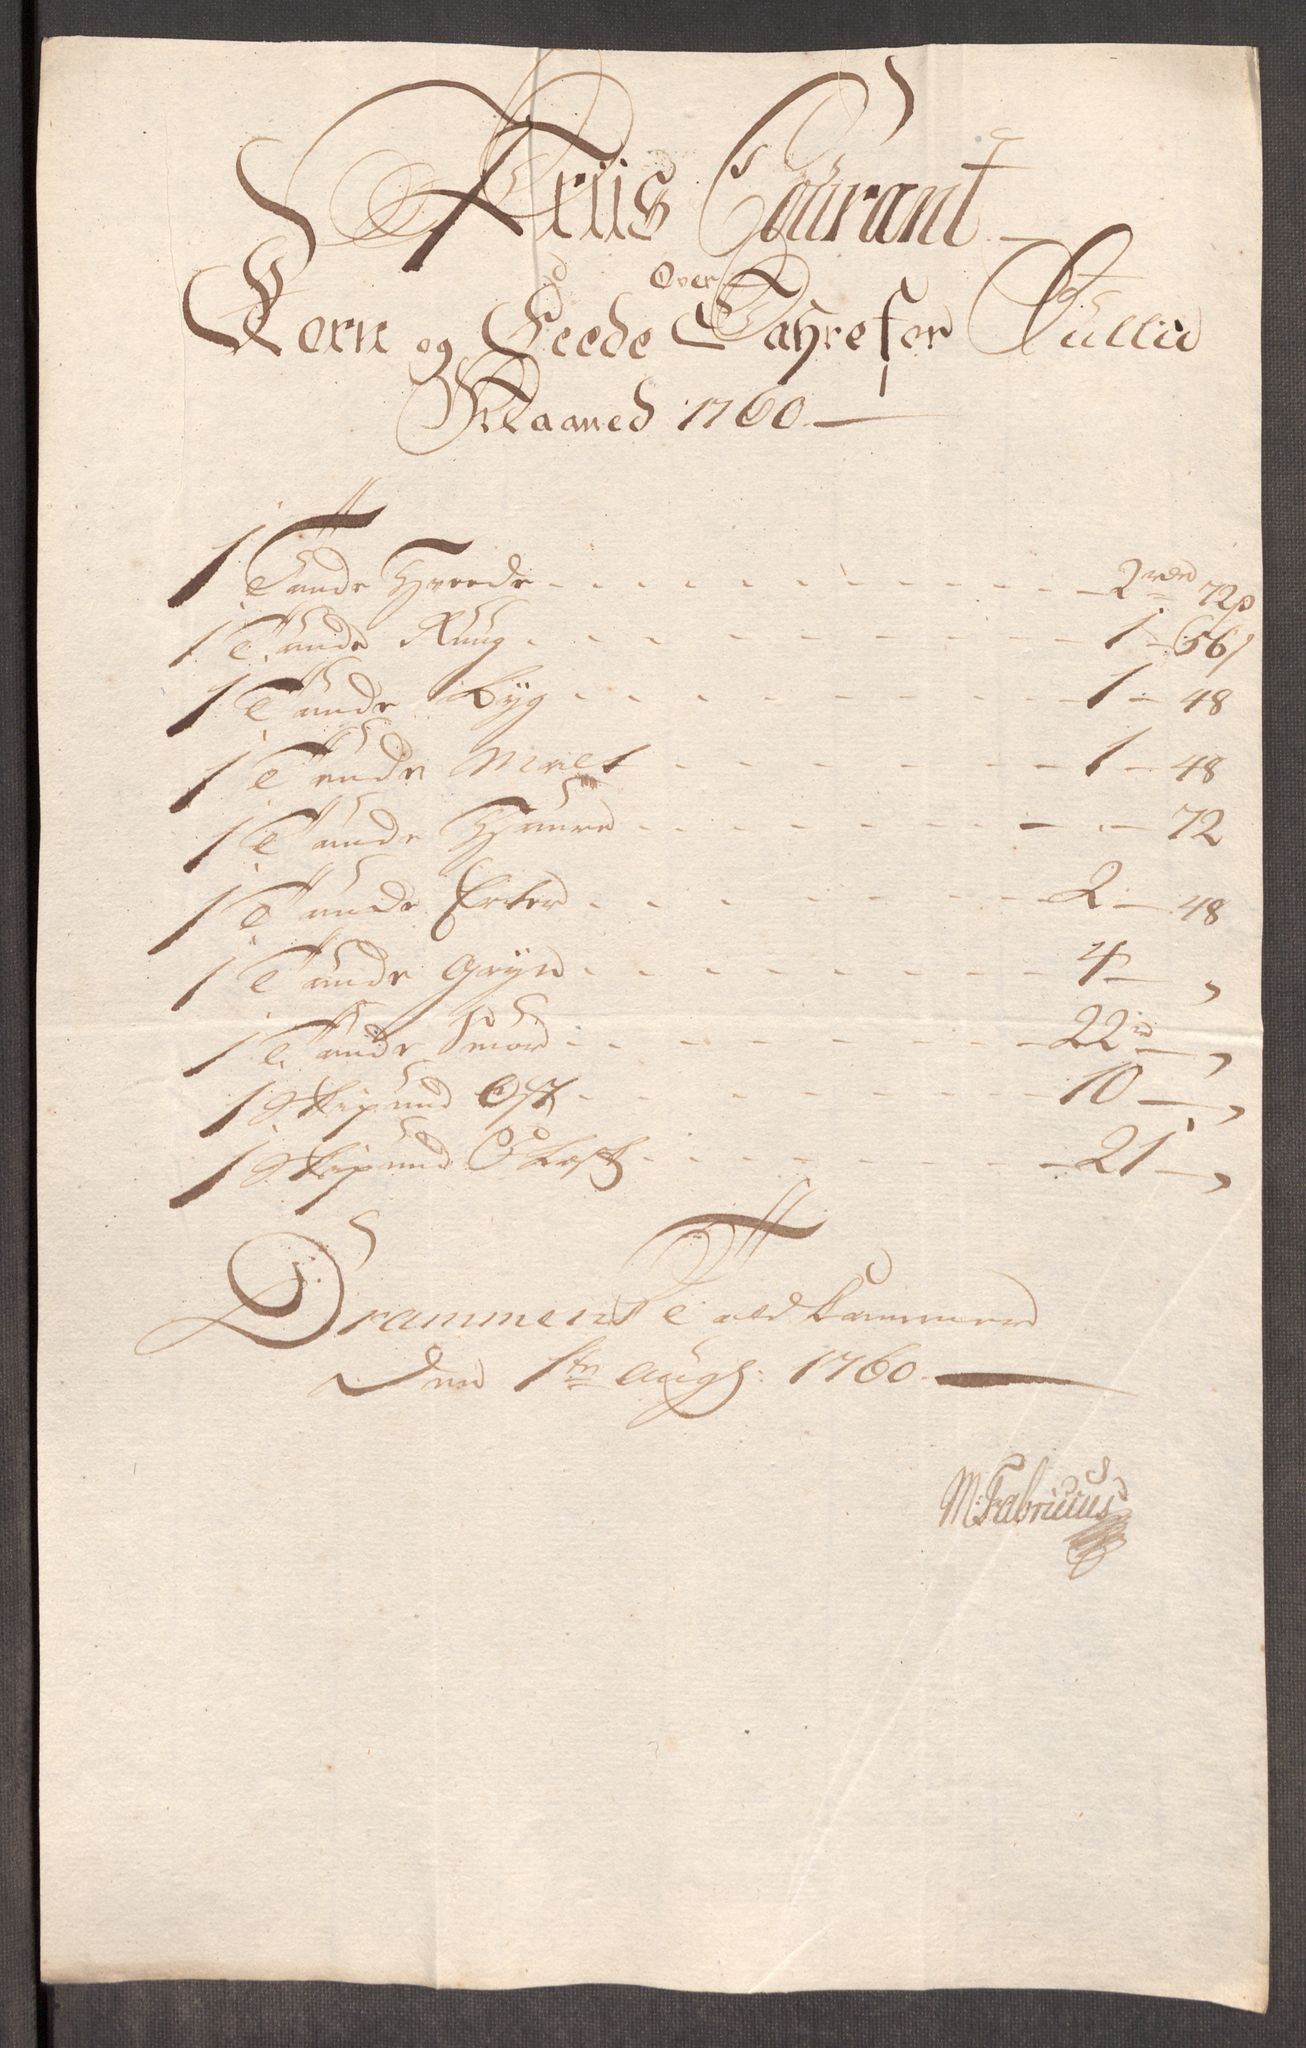 Priis Courant
Over
Korn og Feede Vahre for Jullii
Maaned 1760
1 Tønde Hvede 2 rdr 72 s
1 Tønde Rug 1 - 56
1 Tønde Byg 1 - 48
1 Tønde Malt 1 - 48
1 Tønde Haure - 72
1 Tønde Erter 2 - 48
1 Tønde Gryn 4 - "
1 Tønde Smør 22 - "
1 Skipund Ost 10 - "
1 Skipund Flesk 21 - "
Drammens Toldkammer
den 1te Augst: 1760
M: Fabricius